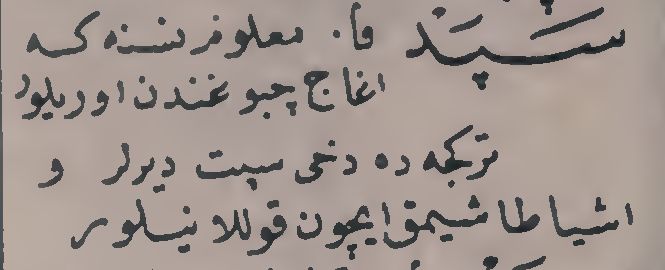 سَپَد فا. معلوم نسنه كه
اغاج چبوغندن اوريلور
تركجه ده دخى سپت ديرلر و
اشيا طاشيمق ايچون قوللانيلور